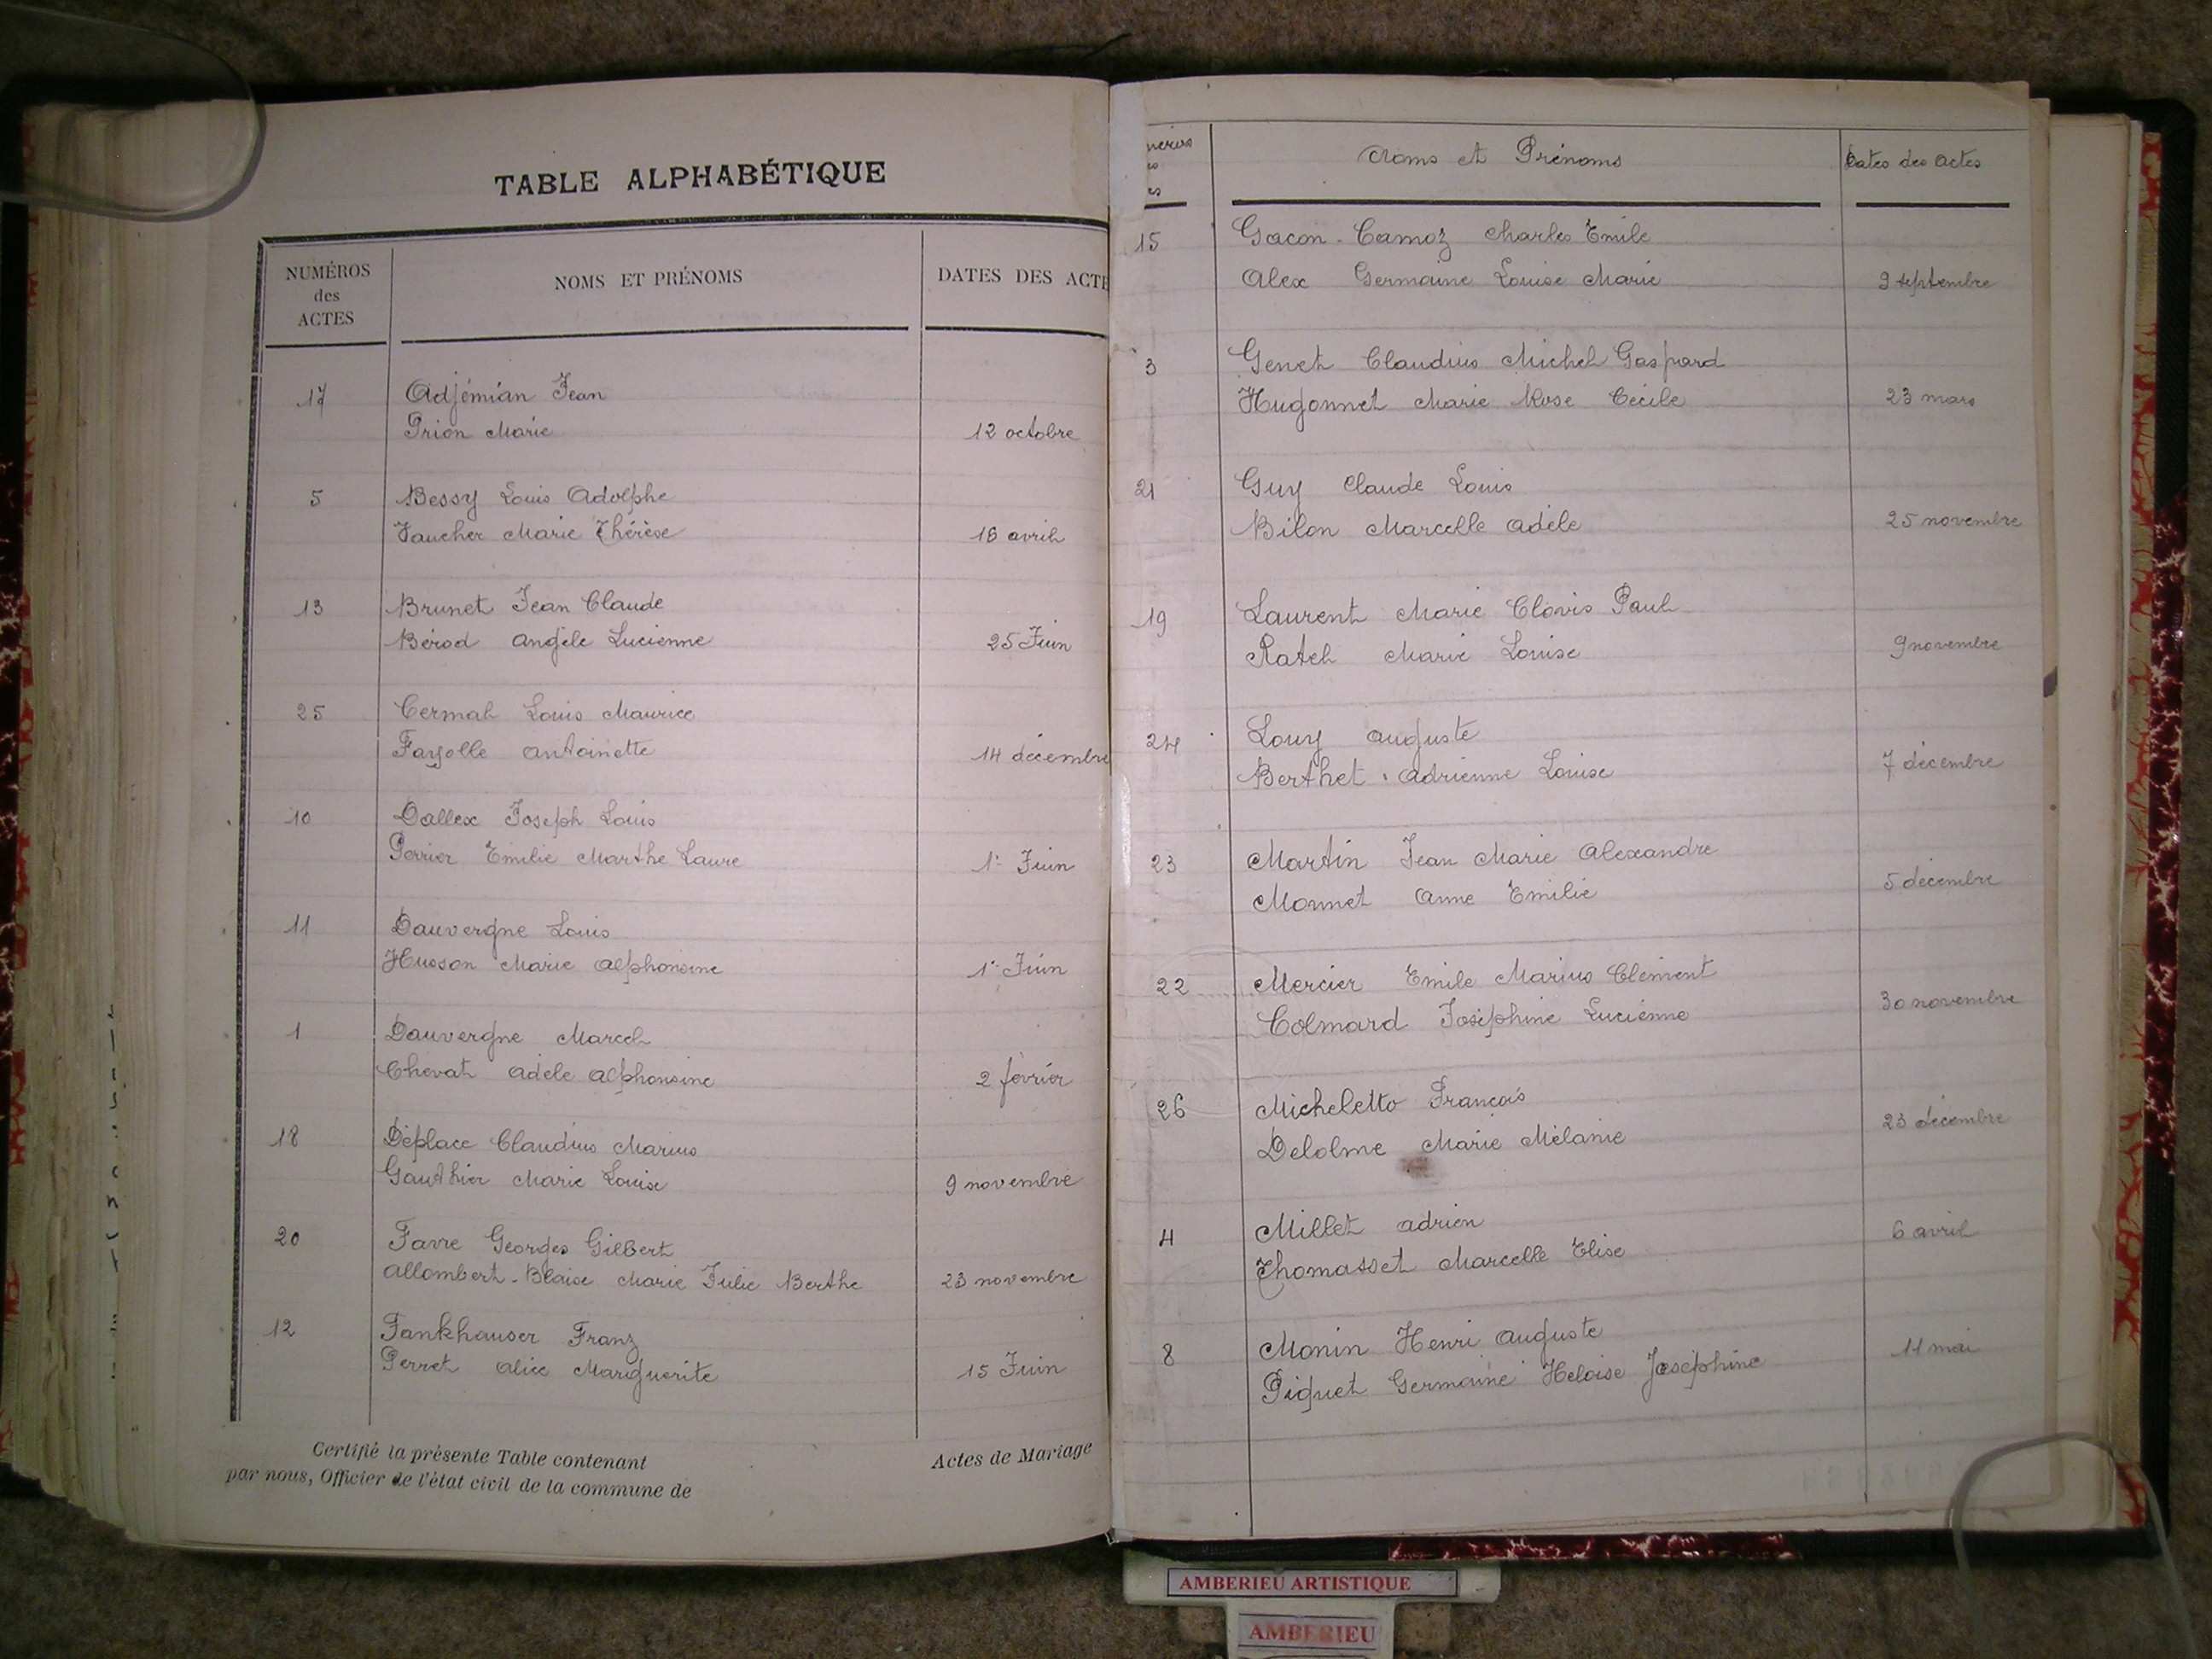 TABLE ALPHABÉTIQUE
NUMÉROS des ACTES NOMS ET PRÉNOMS DATES DES ACTE
17 Adjémian Jean
Prion Marie 12 octobre
5 Bessy Louis Adolphe
Faucher Marie Thérèse 16 avril
13 Brunet Jean Claude
Bérod Angèle Lucienne 25 Juin
25 Cermah Louis Maurice
Fayolle Antoinette 14 décembre
10 Dallex Joseph Louis
Perrier Emilie Marthe Laure 1er Juin
11 Dauvergne Louis
Husson Marie Alphonsine 1er Juin
1 Dauvergne Marcel
Chevat Adèle Alphonsine 2 février
18 Déplace Claudius Marius
Gauthier Marie Louise 9 novembre
20 Favre Georges Gilbert
Allombert-Blaise Marie Julie Berthe 23 novembre
12 Fankhauser Franz
Perret Alice Marguerite 15 Juin
Certifié la présente Table contenant Actes de Mariage
par nous, Officier de l'état civil de la commune de
Noms et Prénoms Dates des actes
15 Gacon-Camoz Charles Emile
Alex Germaine Louise Marie 9 septembre
3 Genet Claudius Michel Gaspard
Hugonnet Marie Rose Cécile 23 mars
21 Guy Claude Louis
Bilon Marcelle Adèle 25 novembre
19 Laurent Marie Clovis Paul
Ratel Marie Louise 9 novembre
24 Louy Auguste
Berthet Adrienne Louise 7 décembre
23 Martin Jean Marie Alexandre
Monnet Anne Emilie 5 décembre
22 Mercier Emile Marius Clément
Colmard Joséphine Lucienne 30 novembre
26 Micheletto François
Delolme Marie Mélanie 23 décembre
4 Millet Adrien
Thomasset Marcelle Elise 6 avril
8 Monin Henri Auguste
Piquet Germaine Héloise Joséphine 11 mai
AMBERIEU ARTISTIQUE
AMBERIEU